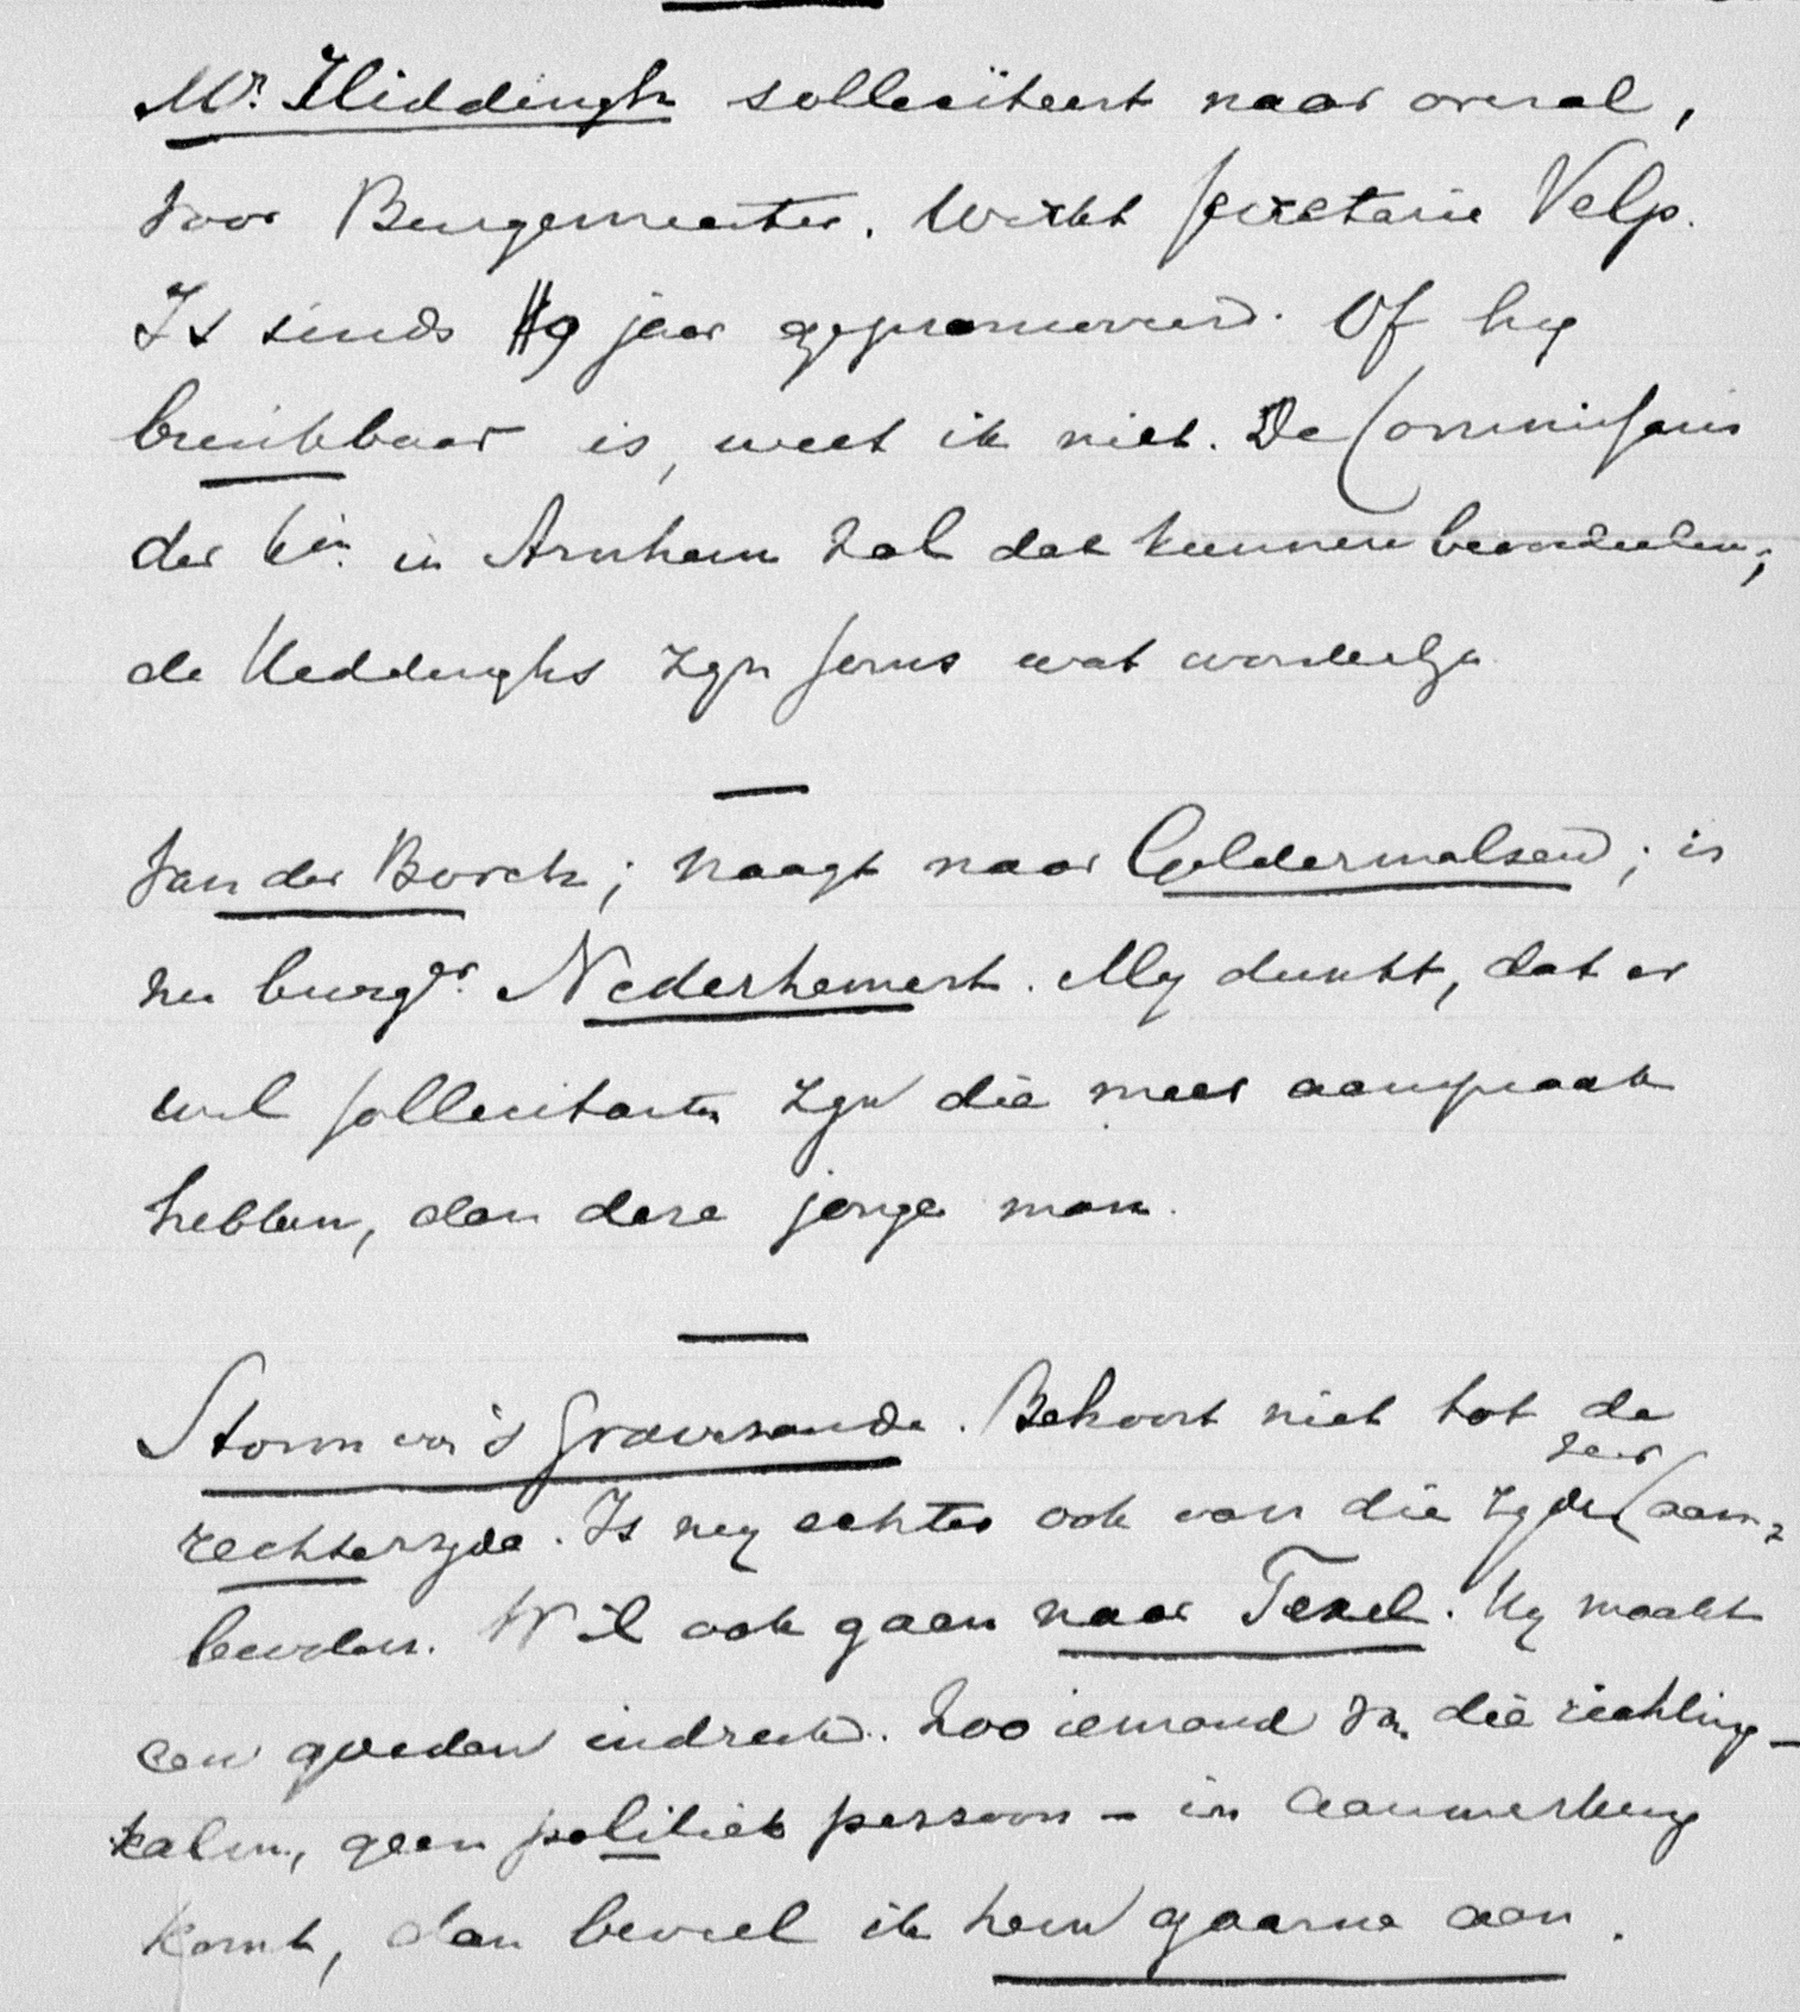 Mr. Hiddingh solliciteert naar overal,
voor Burgemeester. Werkt secretarie Velp.
Is sinds 9 jaar gepromoveerd. Of hij
bruikbaar is, weet ik niet. De Commissaris
der Kin. in Arnhem zal dat kunnen beoordeelen;
de Hiddinghs zijn soms wat wonderlijk
Van der Borch; vraagt naar Geldermalsen; is
nu burgr. Nederhemert. Mij dunkt, dat er
wel sollicitanten zijn die meer aanspraak
hebben, dan deze jonge man.
Storm van 's Gravesande. Behoort niet tot de
rechterzijde. Is mij echter ook van die zijde zeer aan-
bevolen. Wil ook gaan naar Texel. Hij maakt
een goeden indruk. Zoo iemand van die richting -
kalm, geen politiek persoon - in aanmerking
komt, dan beveel ik hem gaarne aan.